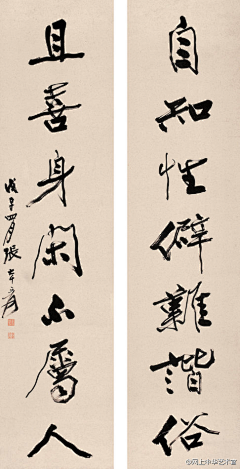 自知性僻難諧俗
且喜身閑不屬人
戊子四月張大千爰
@网上中华艺术室